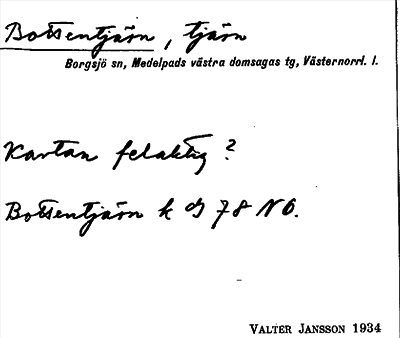 Bottentjärn, tjärn
Borgsjö sn, Medelpads västra domsagas tg, Västernorrl. l.
Kartan felaktig?
Bottentjärn k 78 NO.
VALTER JANSSON 1934